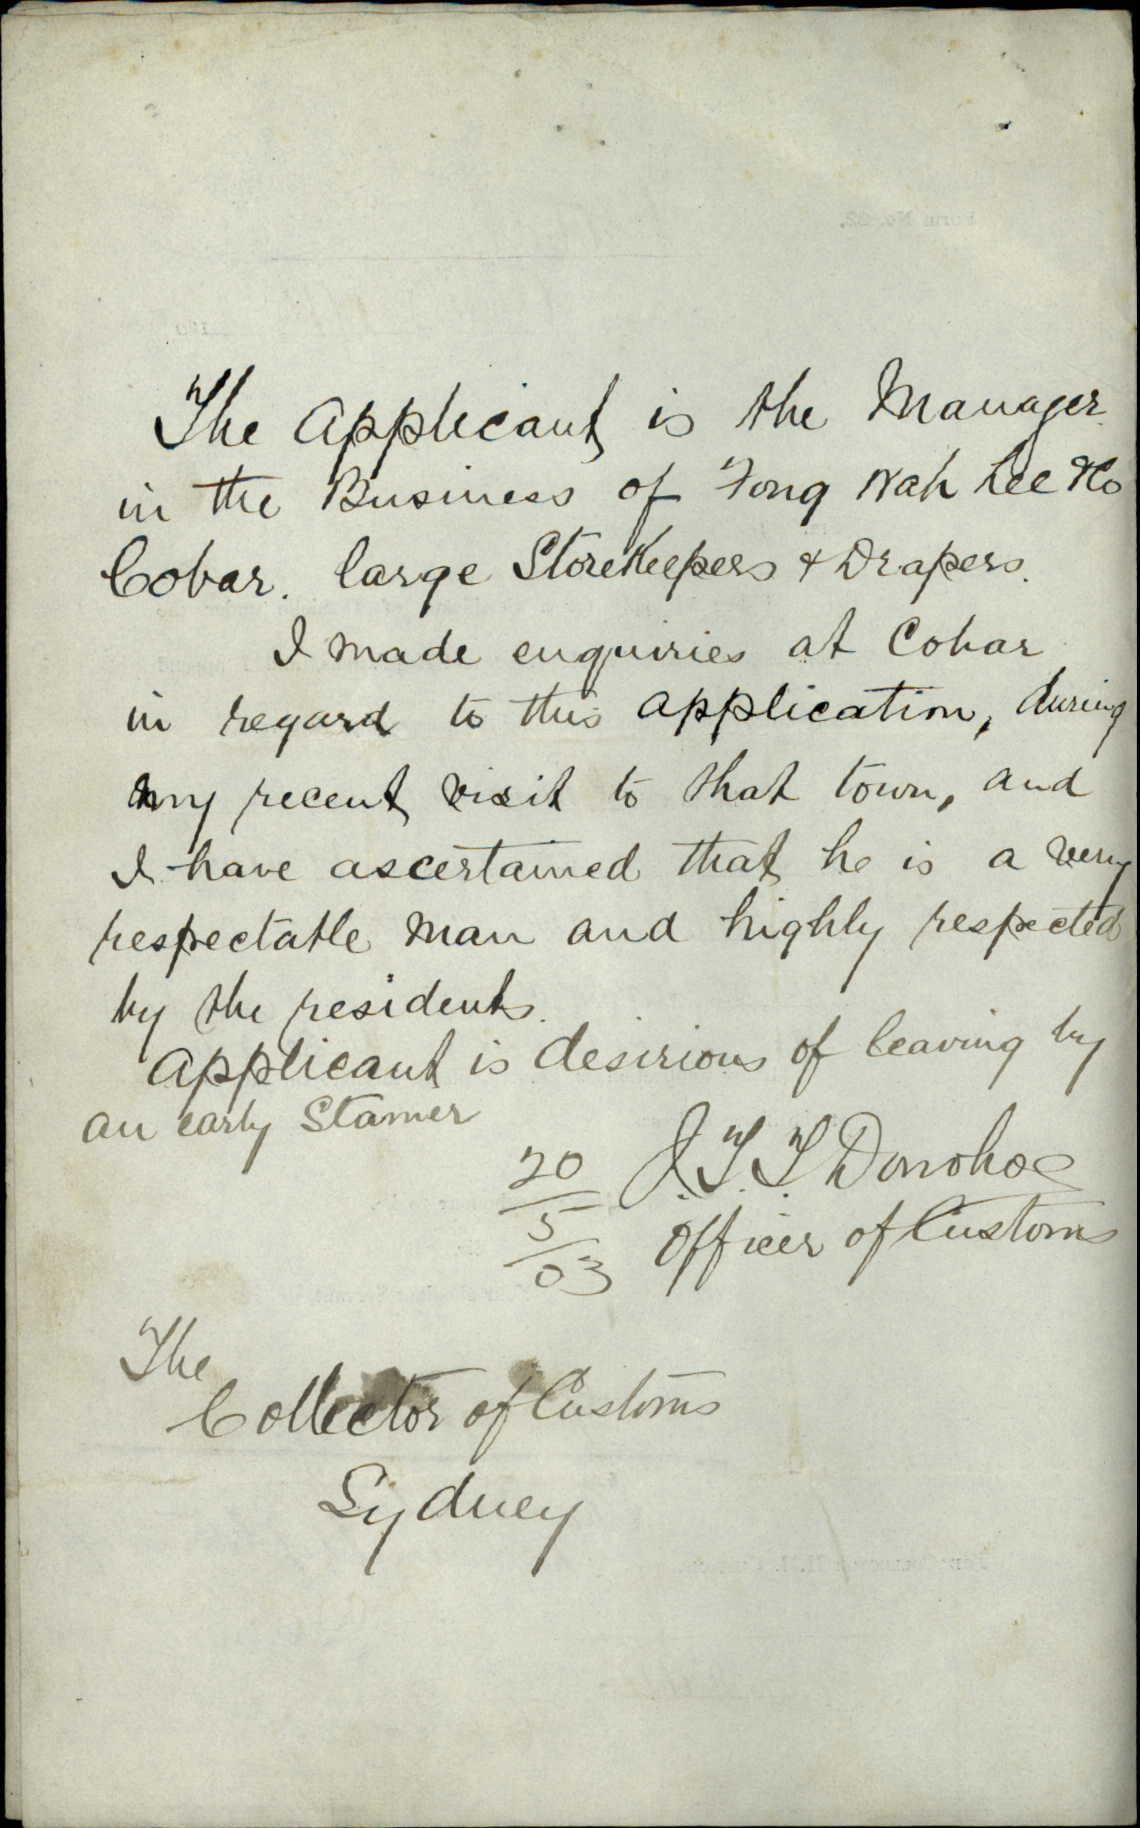 The Applicant is the Manager
in the Business of Fong Wah Lee & Co
Cobar. large Storekeepers & Drapers.
I made enquiries at Cobar
in regard to this application, during
my recent visit to that town, and
I have ascertained that he is a very
respectable man and highly respected
by the residents.
Applicant is desirious of leaving by
an early Stamer
20/5/03 J. T. T. Donohoe
Officer of Customs
The
Collector of Customs
Sydney